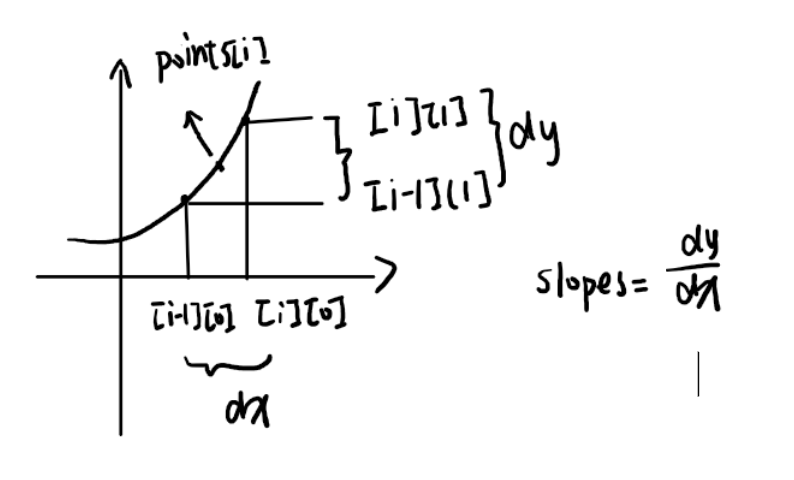 points[i]
[i][1]
dy
[i-1][1]
[i-1][0] [i][0]
dx
slopes = dy
dx